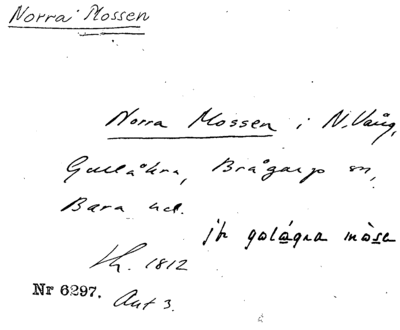 Norra Mossen
Norra Mossen i N. Vång,
Gullåkra, Brågarp sn,
Bara hd.
jfr galågra mòsen
Kh. 1812
Nr 6297. Akt 3.